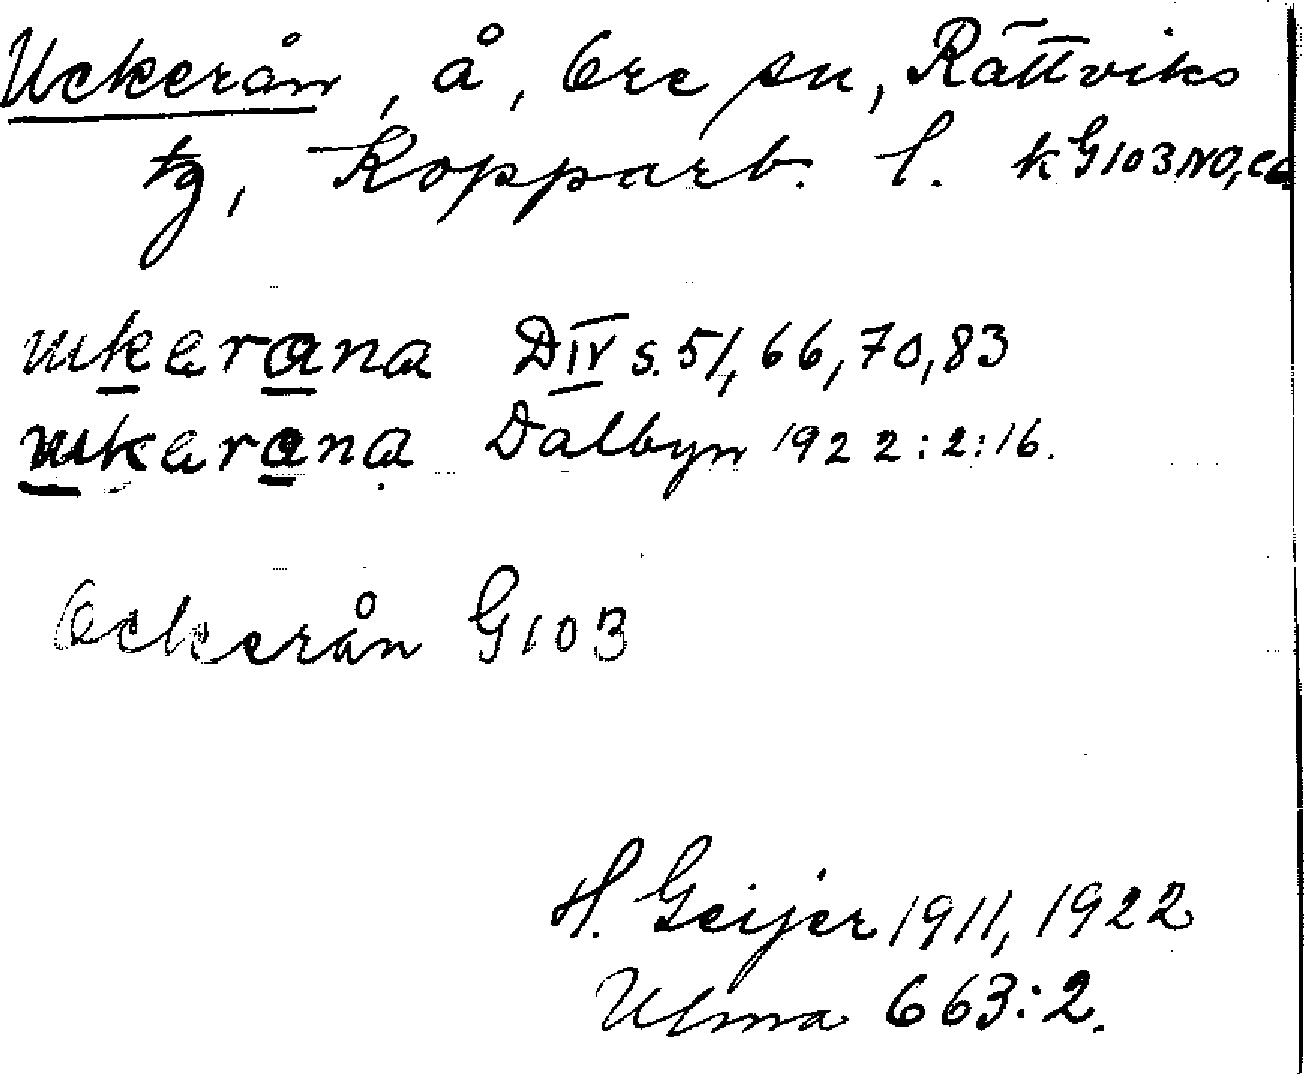 Uckerån, å, Ore sn, Rättviks
tg, Kopparb. l. k G103 NO, cd
ukerana D IV s. 51, 66, 70, 83
ukerana Dalbyn 1922:2:16.
Ockerån G103
H. Geijer 1911, 1922
Ulma 663:2.